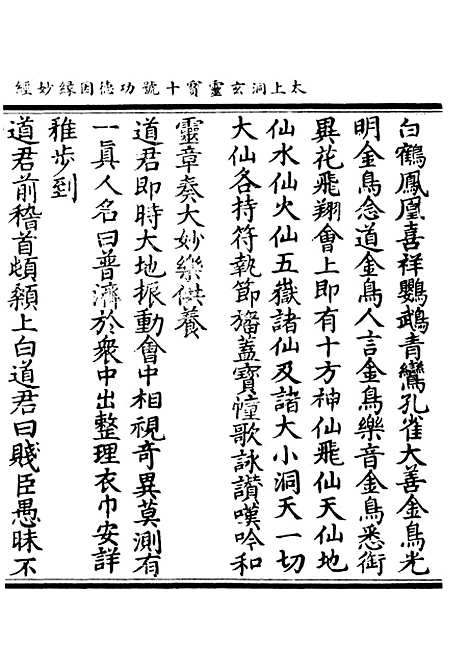 太上洞玄靈寶十號功德因緣妙經
白鶴鳳凰喜祥鸚鵡青鸞孔雀大善金鳥光
明金鳥念道金鳥人言金鳥樂音金鳥悉銜
異花飛翔會上即有十方神仙飛仙天仙地
仙水仙火仙五嶽諸仙及諸大小洞天一切
大仙各持符執節旛蓋寶幢歌詠讚嘆吟和
靈章奏大妙樂供養
道君即時大地振動會中相視奇異莫測有
一真人名曰普濟於眾中出整理衣巾安詳
雅步到
道君前稽首頓顙上白道君曰賤臣愚昧不